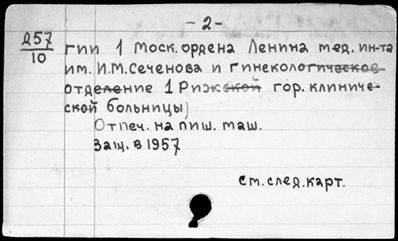 - 2 -
257
10
гии 1 Моск. ордена Ленина мед. ин-та
им. И.М. Сеченова и гинекологическое
отделение 1 Рижской гор. клиниче-
ской больницы)
Отпеч. на пиш. маш.
Защ. в 1957
см. след. карт.